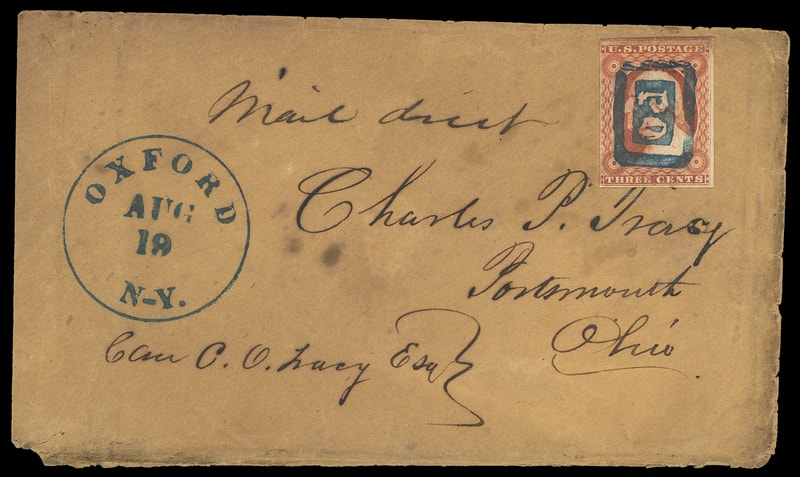 U.S. POSTAGE
PAID
THREE CENTS
Mail direct
OXFORD
AUG
19
N-Y.
Charles P. Tracy
Portsmouth
Ohio
Care C. O. Tracy Esq